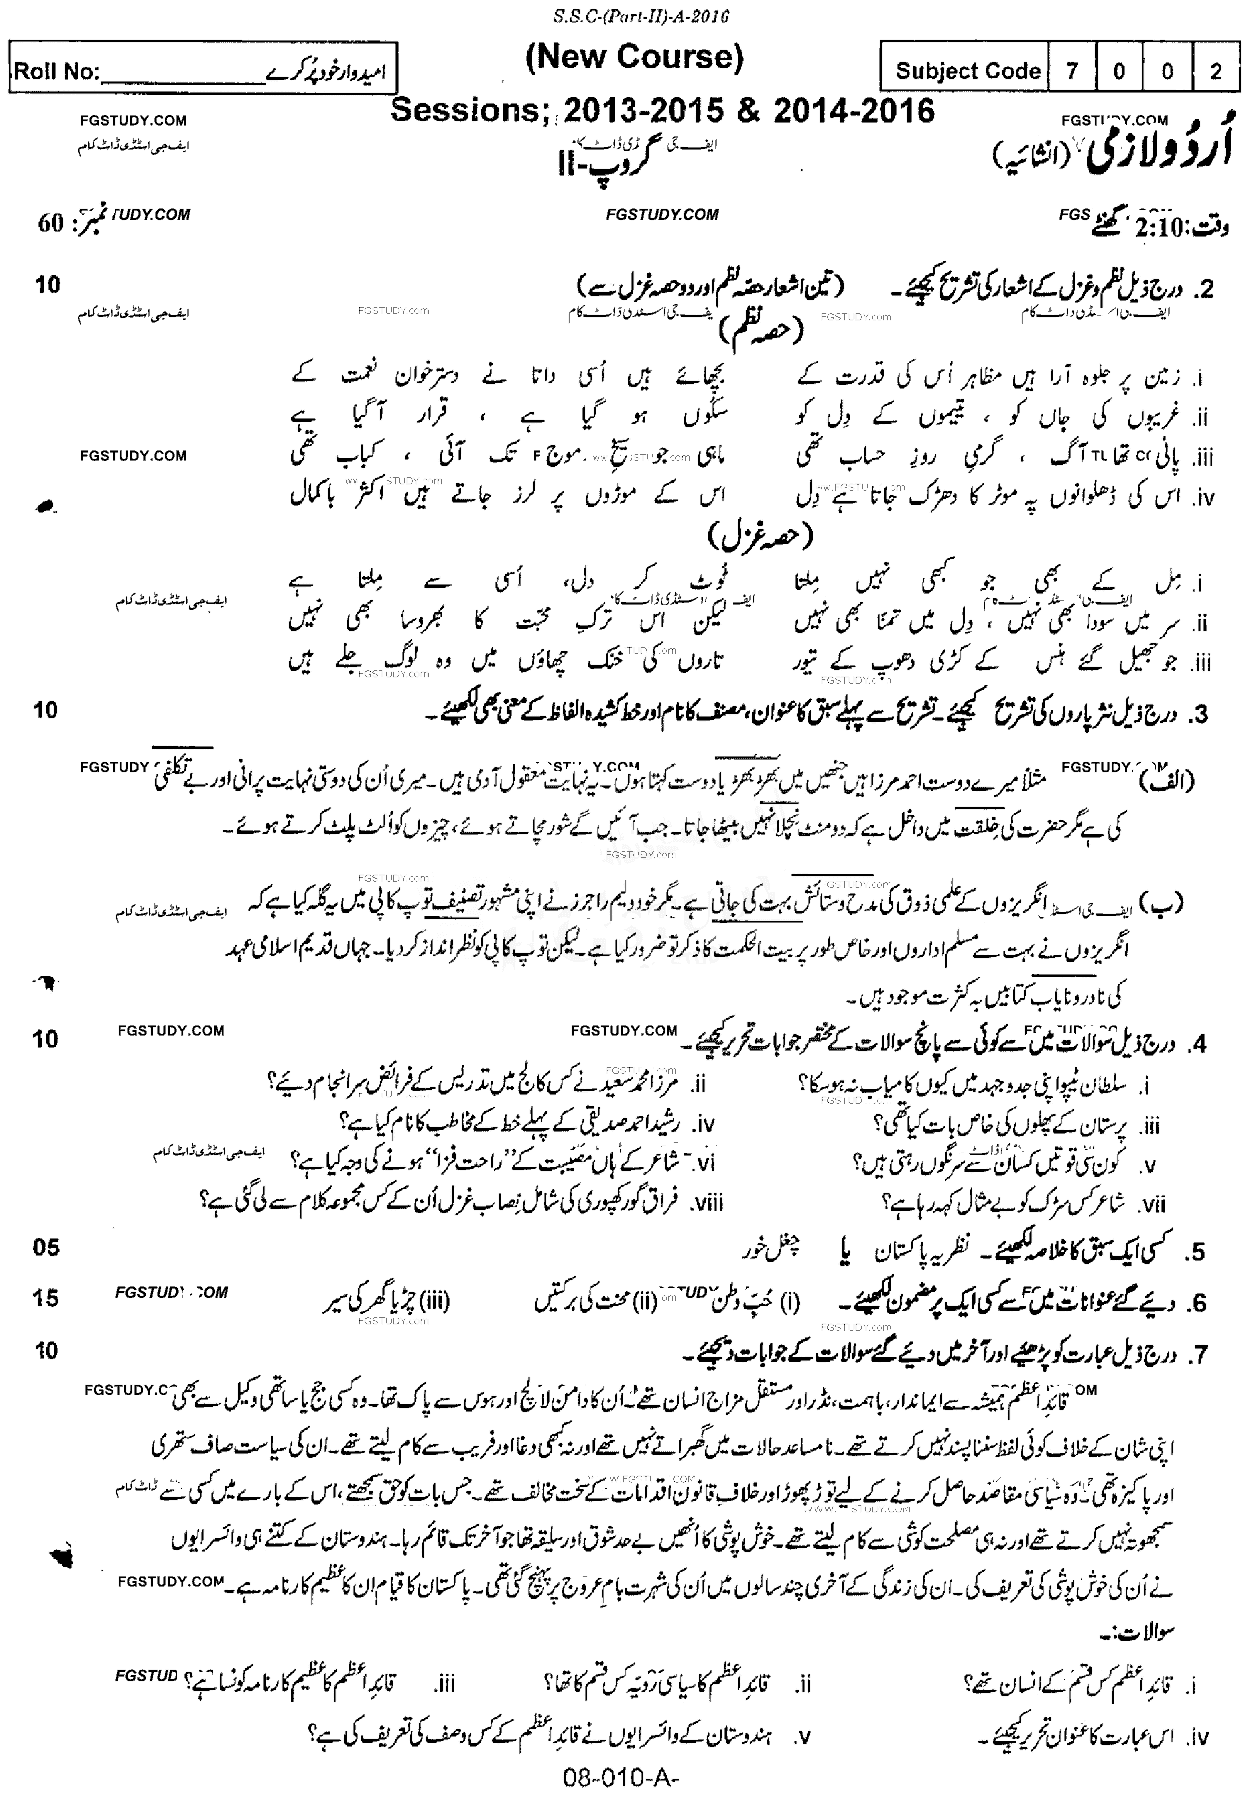 S.S.C-(Part-II)-A-2016
Roll No: امیدوار خود پُر کرے (New Course) Subject Code 7 0 0 2
Sessions; 2013-2015 & 2014-2016
FGSTUDY.COM FGSTUDY.COM
اُردُو لازمی (انشائیہ) گروپ-II ایف جی اسٹڈی ڈاٹ کام
وقت: 2:10 گھنٹے FGSTUDY.COM نمبر: 60
2. درج ذیل نظم و غزل کے اشعار کی تشریح کیجئے۔ (تین اشعار حصہ نظم اور دو حصہ غزل سے) 10
ایف جی اسٹڈی ڈاٹ کام FGSTUDY.com ایف جی اسٹڈی ڈاٹ کام FGSTUDY.com ایف جی اسٹڈی ڈاٹ کام
(حصہ نظم)
i. زمین پر جلوہ آرا ہیں مظاہر اُس کی قدرت کے بچھائے ہیں اُسی داتا نے دسترخوان نعمت کے
ii. غریبوں کی جاں کو ، یتیموں کے دِل کو سکُوں ہو گیا ہے ، قرار آ گیا ہے
iii. پانی تھا آگ ، گرمیِ روزِ حساب تھی ماہی جو سیخِ موج تک آئی ، کباب تھی FGSTUDY.COM
iv. اس کی ڈھلوانوں پہ موٹر کا دھڑک جاتا ہے دِل اس کے موڑوں پر لرز جاتے ہیں اکثر باکمال
(حصہ غزل)
i. مِل کے بھی جو کبھی نہیں مِلتا ٹوٹ کر دل، اُسی سے مِلتا ہے
ایف جی اسٹڈی ڈاٹ کام
ii. سر میں سودا بھی نہیں ، دِل میں تمنّا بھی نہیں لیکن اس ترکِ محبّت کا بھروسا بھی نہیں
iii. جو جھیل گئے ہنس کے کڑی دھوپ کے تیور تاروں کی خنک چھاؤں میں وہ لوگ جلے ہیں
3. درج ذیل نثر پاروں کی تشریح کیجئے۔ تشریح سے پہلے سبق کا عنوان، مصنف کا نام اور خط کشیدہ الفاظ کے معنی بھی لکھیئے۔ 10
(الف) مثلاً میرے دوست احمد مرزا ہیں جنھیں میں بھڑ بھڑیا دوست کہتا ہوں۔ یہ نہایت معقول آدمی ہیں۔ میری اُن کی دوستی نہایت پرانی اور بے تکلفی
کی ہے مگر حضرت کی خِلقت میں داخل ہے کہ دو منٹ نچلا نہیں بیٹھا جاتا۔ جب آئیں گے شور مچاتے ہوئے، چیزوں کو اُلٹ پلٹ کرتے ہوئے۔
FGSTUDY.com
(ب) انگریزوں کے علمی ذوق کی مدح و ستائش بہت کی جاتی ہے۔ مگر خود ولیم راجرز نے اپنی مشہور تصنیف توپ کاپی میں یہ گلہ کیا ہے کہ ایف جی اسٹڈی ڈاٹ کام
انگریزوں نے بہت سے مسلم اداروں اور خاص طور پر بیت الحکمت کا ذکر تو ضرور کیا ہے۔ لیکن توپ کاپی کو نظر انداز کر دیا۔ جہاں قدیم اسلامی عہد
کی نادر و نایاب کتابیں بہ کثرت موجود ہیں۔
4. درج ذیل سوالات میں سے کوئی سے پانچ سوالات کے مختصر جوابات تحریر کیجئے۔ FGSTUDY.COM FGSTUDY.COM 10
i. سلطان ٹیپو اپنی جدوجہد میں کیوں کامیاب نہ ہو سکا؟ ii. مرزا محمد سعید نے کس کالج میں تدریس کے فرائض سرانجام دیئے؟
iii. پرستان کے پھلوں کی خاص بات کیا تھی؟ iv. رشید احمد صدیقی کے پہلے خط کے مخاطب کا نام کیا ہے؟
v. کون سی قوتیں کسان سے سرنگوں رہتی ہیں؟ vi. شاعر کے ہاں مصیبت کے "راحت فزا" ہونے کی وجہ کیا ہے؟ ایف جی اسٹڈی ڈاٹ کام
vii. شاعر کس سڑک کو بے مثال کہہ رہا ہے؟ viii. فراق گورکھپوری کی شاملِ نصاب غزل اُن کے کس مجموعہ کلام سے لی گئی ہے؟
5. کسی ایک سبق کا خلاصہ لکھیئے۔ نظریہ پاکستان یا چغل خور 05
6. دیئے گئے عنوانات میں سے کسی ایک پر مضمون لکھیئے۔ (i) حُبِّ وطن (ii) محنت کی برکتیں (iii) چڑیا گھر کی سیر FGSTUDY.COM 15
7. درج ذیل عبارت کو پڑھیئے اور آخر میں دیئے گئے سوالات کے جوابات دیجئے۔ 10
قائدِ اعظم ہمیشہ سے ایماندار، باہمت، نڈر اور مستقل مزاج انسان تھے۔ اُن کا دامن لالچ اور ہوس سے پاک تھا۔ وہ کسی جج یا ساتھی وکیل سے بھی
اپنی شان کے خلاف کوئی لفظ سننا پسند نہیں کرتے تھے۔ نامساعد حالات میں گھبراتے نہیں تھے اور نہ کبھی دغا اور فریب سے کام لیتے تھے۔ ان کی سیاست صاف ستھری
اور پاکیزہ تھی۔ وہ سیاسی مقاصد حاصل کرنے کے لیے توڑ پھوڑ اور خلاف قانون اقدامات کے سخت مخالف تھے۔ جس بات کو حق سمجھتے، اس کے بارے میں کسی سے
سمجھوتہ نہیں کرتے تھے اور نہ ہی مصلحت کوشی سے کام لیتے تھے۔ خوش پوشی کا اُنھیں بے حد شوق اور سلیقہ تھا جو آخر تک قائم رہا۔ ہندوستان کے کتنے ہی وائسرایوں
نے اُن کی خوش پوشی کی تعریف کی۔ ان کی زندگی کے آخری چند سالوں میں اُن کی شہرت بامِ عروج پر پہنچ گئی تھی۔ پاکستان کا قیام ان کا عظیم کارنامہ ہے۔ FGSTUDY.COM
سوالات:۔
i. قائدِ اعظم کس قسم کے انسان تھے؟ ii. قائدِ اعظم کا سیاسی رَوّیہ کس قسم کا تھا؟ iii. قائدِ اعظم کا عظیم کارنامہ کونسا ہے؟
iv. اس عبارت کا عنوان تحریر کیجئے۔ v. ہندوستان کے وائسرایوں نے قائدِ اعظم کے کس وصف کی تعریف کی ہے؟
08-010-A-